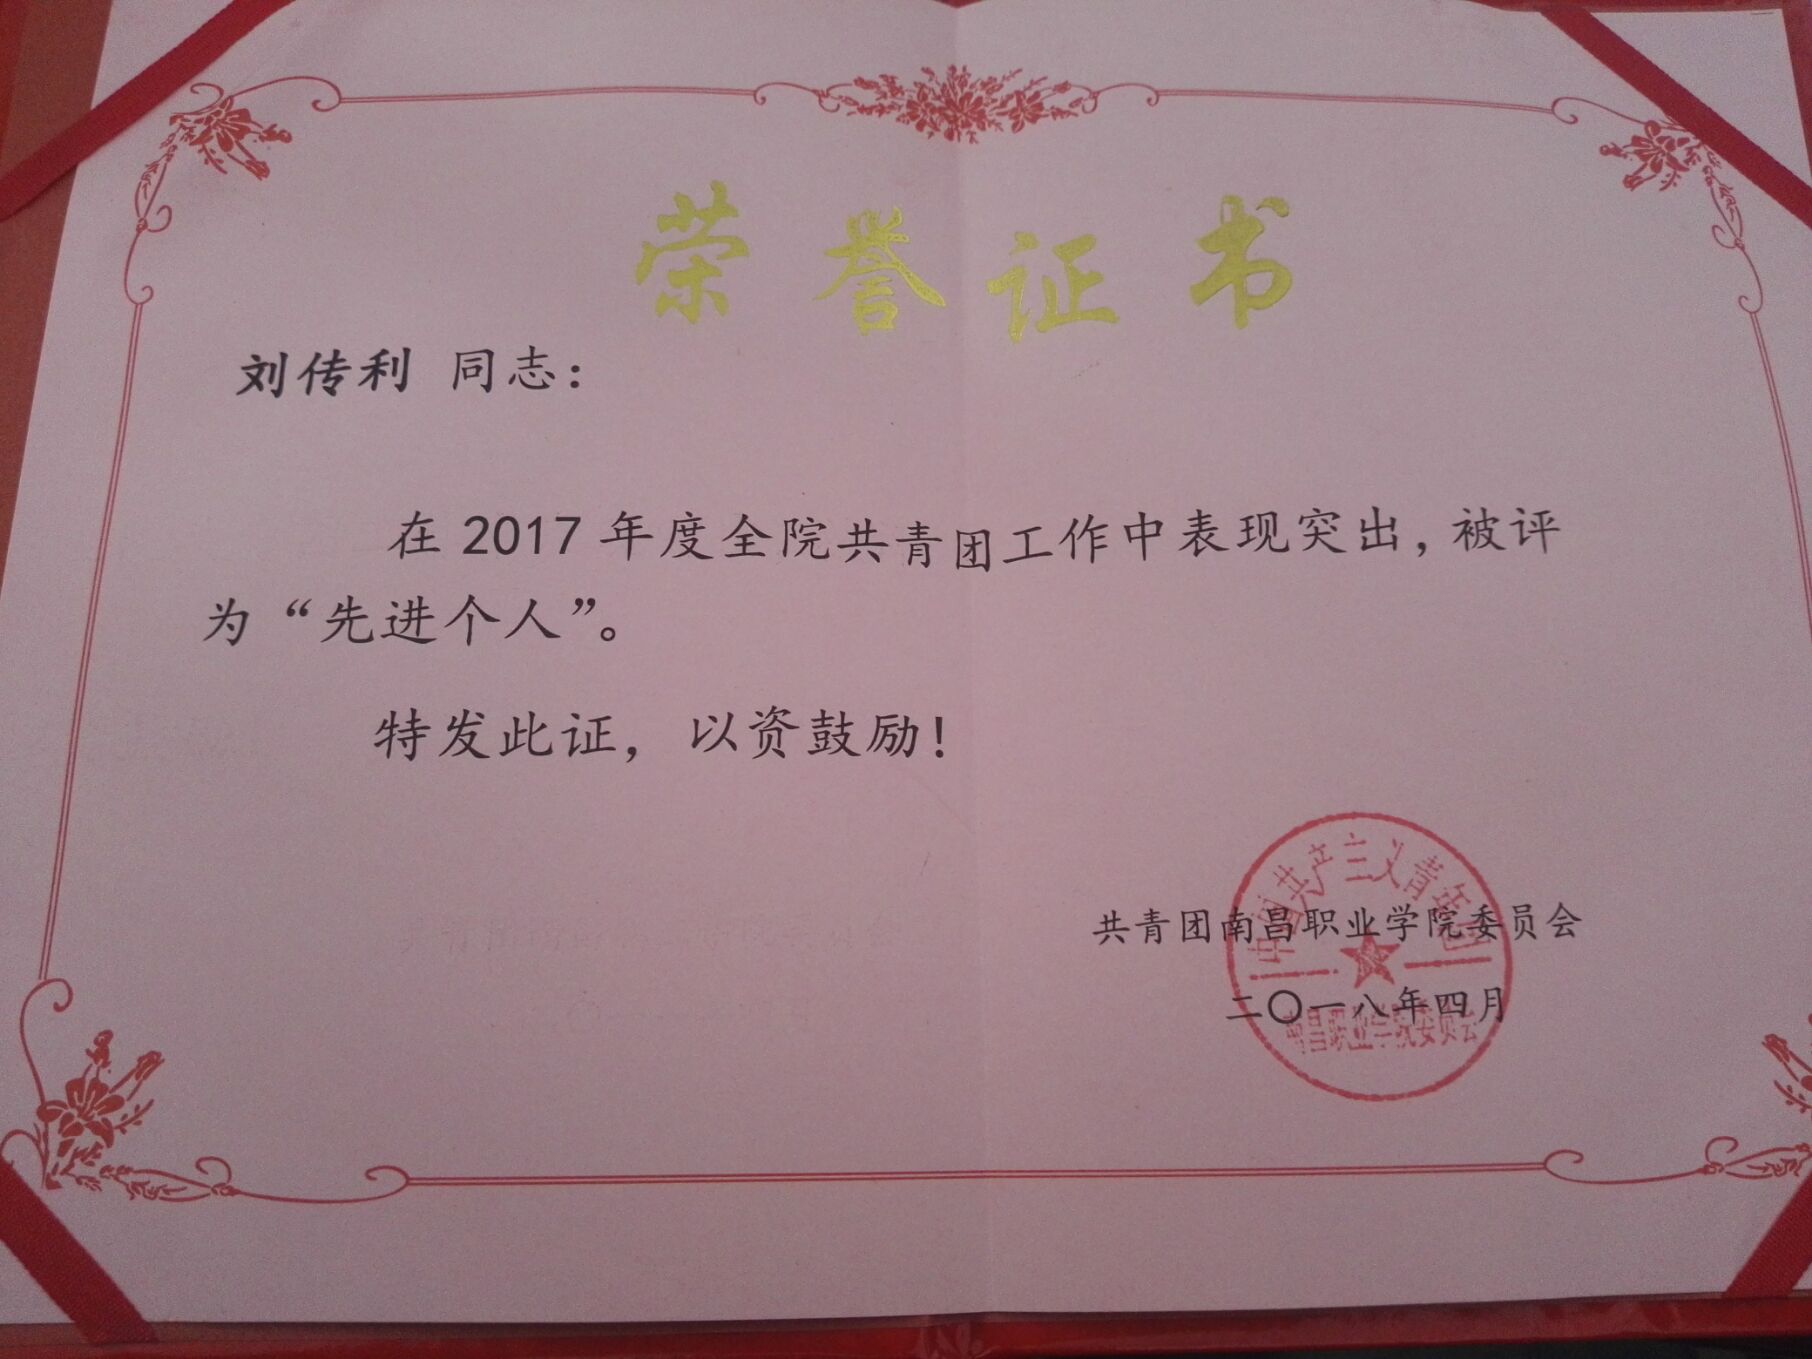 荣誉证书
刘传利 同志：
在 2017 年度全院共青团工作中表现突出，被评
为“先进个人”。
特发此证，以资鼓励！
共青团南昌职业学院委员会
二〇一八年四月
中国共产主义青年团
南昌职业学院委员会